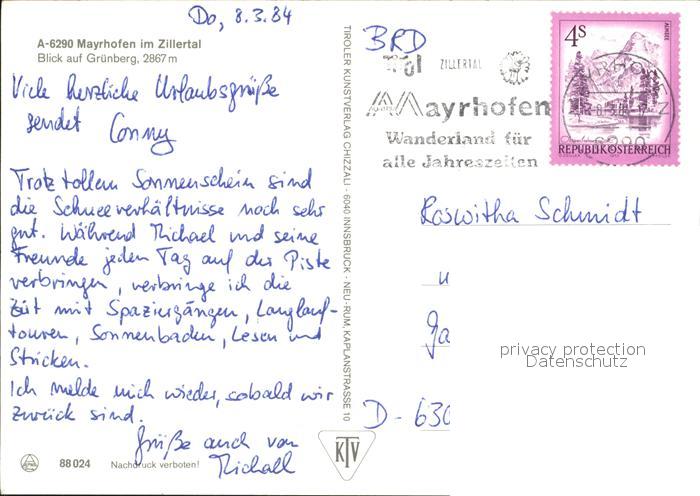 Do, 8.3.84
A-6290 Mayrhofen im Zillertal
Blick auf Grünberg, 2867 m
Viele herzliche Urlaubsgrüße
sendet Conny
Trotz tollem Sonnenschein sind
die Schneeverhältnisse noch sehr
gut. Während Michael und seine
Freunde jeden Tag auf der Piste
verbringen, verbringe ich die
Zeit mit Spaziergängen, Langlauf-
touren, Sonnenbaden, Lesen und
Stricken.
Ich melde mich wieder, sobald wir
zurück sind.
Grüße auch von
Michael
88 024 Nachdruck verboten!
TIROLER KUNSTVERLAG CHIZZALI · 6040 INNSBRUCK - NEU-RUM, KAPLANSTRASSE 10
KTV
BRD
Tirol ZILLERTAL
Mayrhofen
Wanderland für
alle Jahreszeiten
4s
ALMSEE
REPUBLIK ÖSTERREICH
6290
Roswitha Schmidt
D - 630
privacy protection
Datenschutz